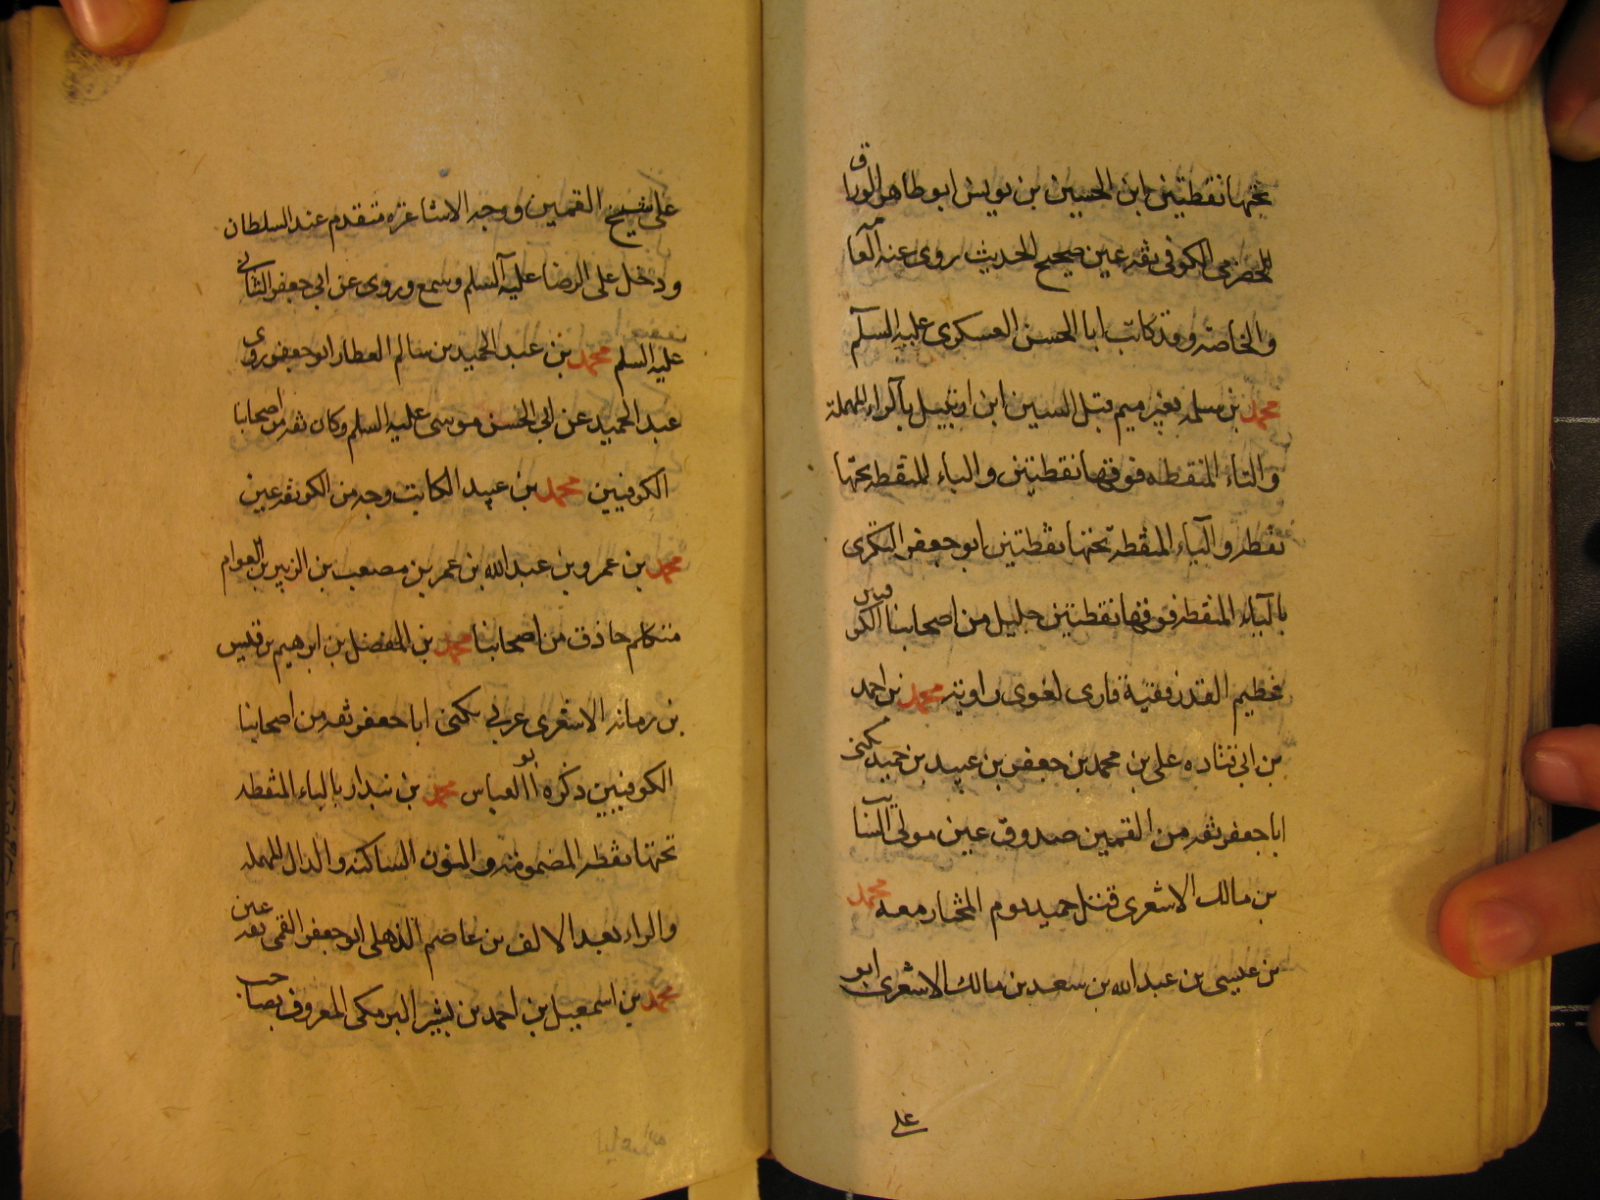 تحتها نقطتين ابن الحسين بن يونس ابو طاهر الوراق
الحضرمى الكوفى ثقه عين صحيح الحديث روى عنه العامه
والخاصه وقد كاتب ابا الحسن العسكرى عليه السلم
محمد بن مسلمه بغير ميم قبل السين ابن ارتبيل بالراء المهملة
والتاء المنقطه فوقها نقطتين والباء المنقطه تحتها
نقطه والياء المنقطه تحتها نقطتين ابو جعفر اليتكرى
بالياء المنقطه فوقها نقطتين جليل من اصحابنا الكوفيين
عظيم القدر فقية قارى لغوى راويه محمد بن احمد
بن ابى قتاده على بن محمد بن جعفر بن عبيد بن حميد يكنى
ابا جعفر ثقه من القمين صدوق عين مولى السائب
بن مالك الاشعرى قتل حميد يوم المختار معه محمد
بن عيسى بن عبد الله بن سعد بن مالك الاشعرى ابو
على
على شيخ القمين ووجه الاشاعره متقدم عند السلطان
ودخل على الرضا عليه السلم وسمع وروى عن ابى جعفر الثانى
عليه السلم محمد بن عبد الحميد بن سالم العطار ابو جعفر روى
عبد الحميد عن ابى الحسن موسى عليه السلم وكان ثقه من اصحابنا
الكوفيين محمد بن عبيد الكاتب وجه من الكو ثقه عين
محمد بن عمرو بن عبد الله بن عمر بن مصعب بن الزبير بن العوام
متكلم حاذق من اصحابنا محمد بن المفضل بن ابرهيم بن قيس
بن رمانه الاشعرى عربى يكنى ابا جعفر ثقه من اصحابنا
الكوفيين ذكره ابو العباس محمد بن بندار بالباء المنقطه
تحتها نقطه المضمومه والنون الساكنه والدال المهمله
والراء بعد الالف بن عاصم الذهلى ابو جعفر القمى ثقه عين
محمد بن اسمعيل بن احمد بن بشير البرمكى المعروف بصاحب